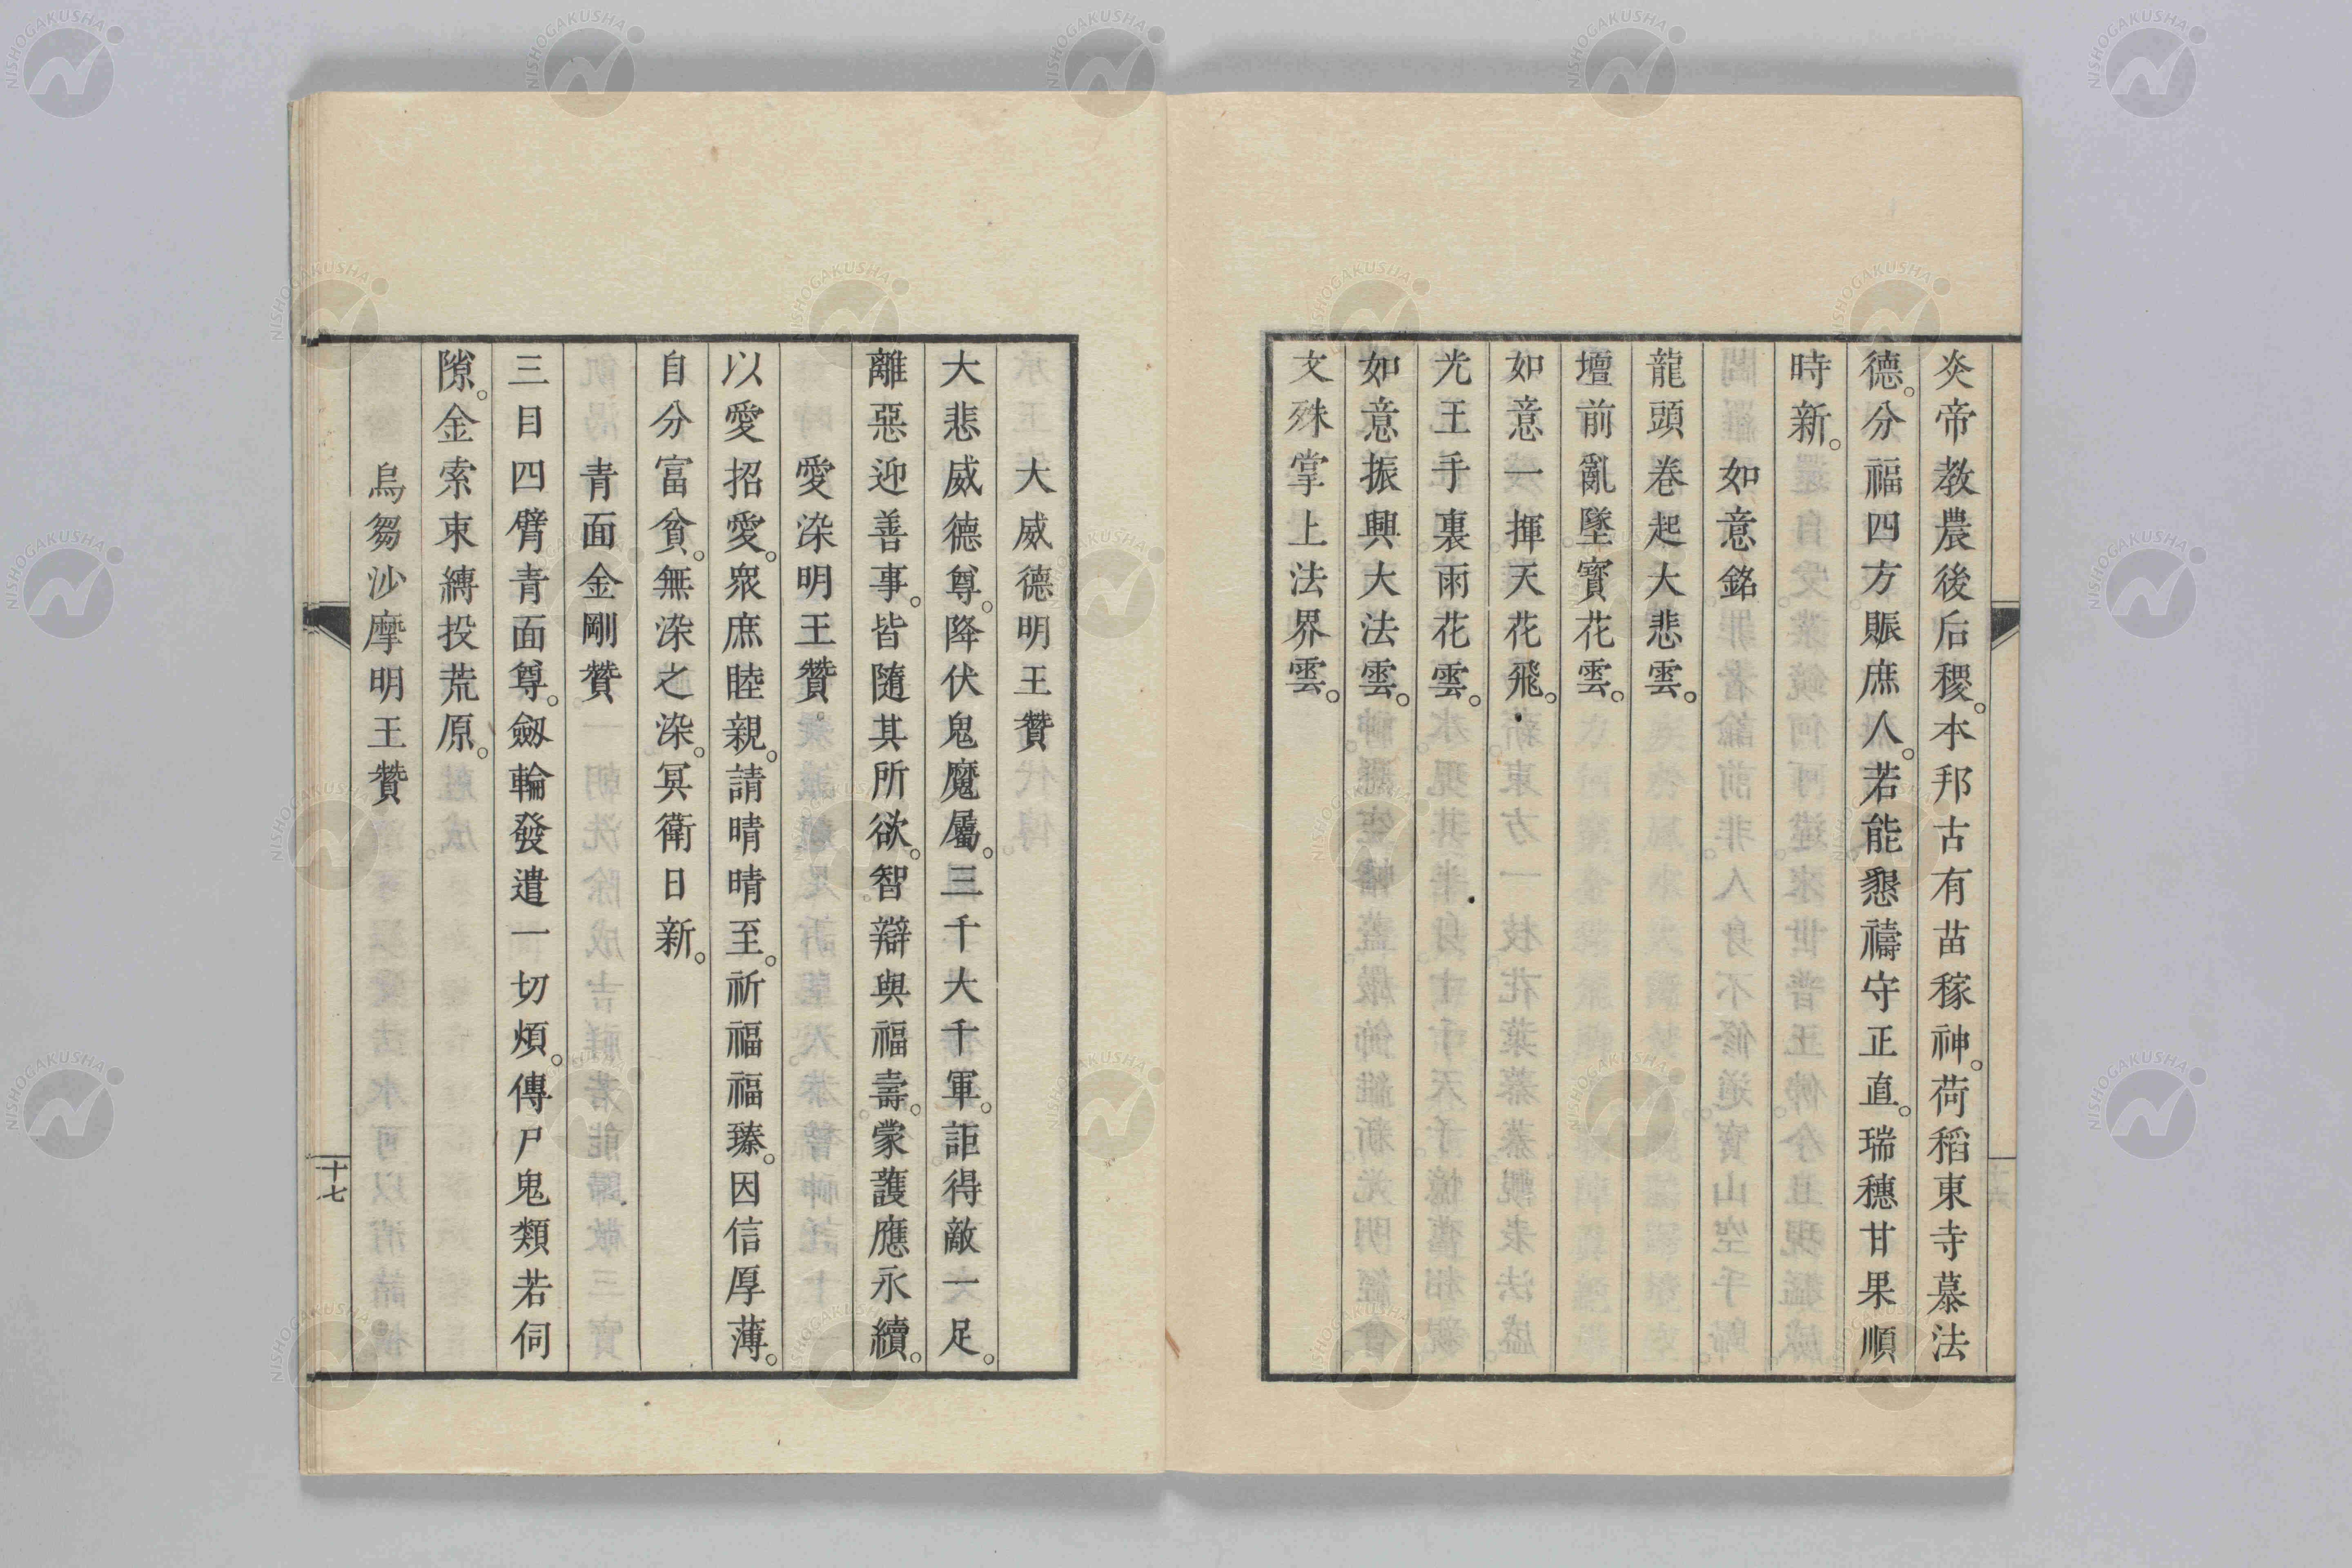 炎帝教農後后稷。本邦古有苗稼神。荷稻東寺慕法
德。分福四方賑庶人。若能懇禱守正直。瑞穗甘果順
時新。
如意銘
龍頭卷起大悲雲。
壇前亂墜寶花雲。
如意一揮天花飛。
光王手裏雨花雲。
如意振興大法雲。
文殊掌上法界雲。
大威德明王贊
大悲威德尊。降伏鬼魔屬。三千大千軍。詎得敵一足。
離惡迎善事。皆隨其所欲。智辯與福壽。蒙護應永續。
愛染明王贊。
以愛招愛。衆庶睦親。請晴晴至。祈福福臻。因信厚薄。
自分富貧。無染之染。冥衛日新。
青面金剛贊
三目四臂青面尊。劔輪發遣一切煩。傳尸鬼類若伺
隙。金索束縛投荒原。
烏芻沙摩明王贊
十七
NISHOGAKUSHA